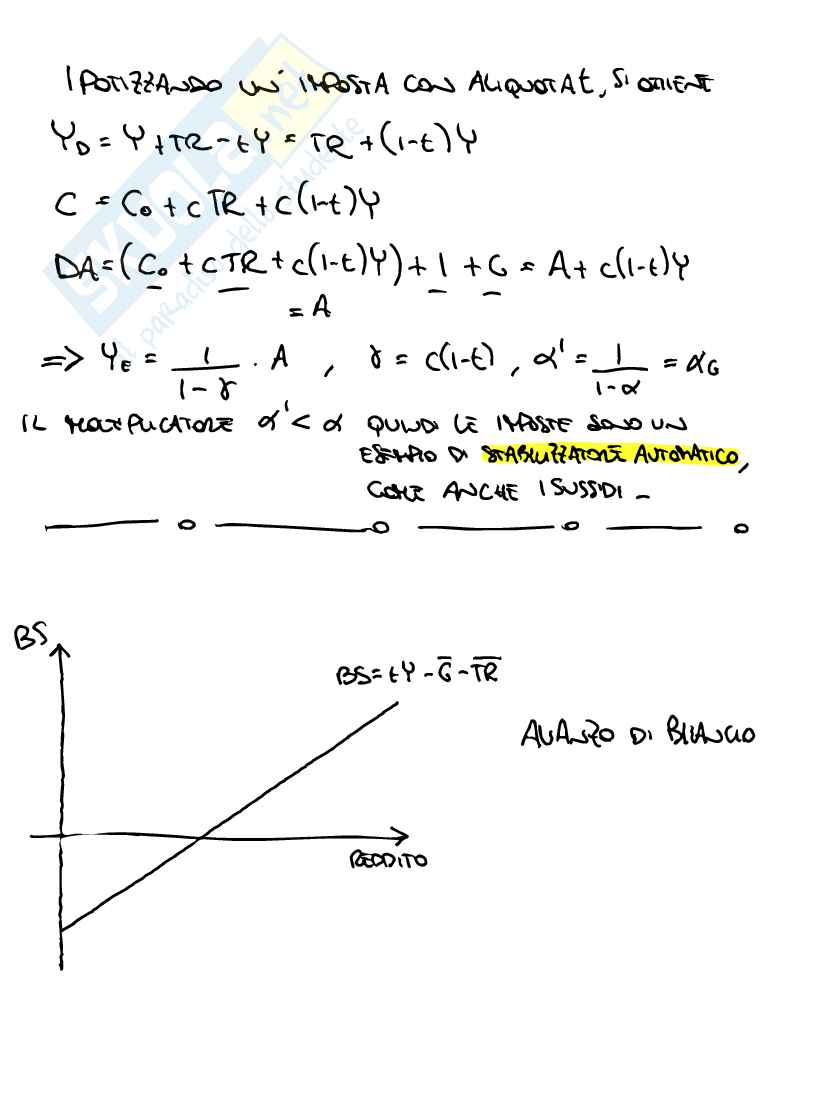 IPOTIZZANDO UN' IMPOSTA CON ALIQUOTA t, SI OTTIENE
Y_D = Y + TR - tY = TR + (1-t)Y
C = C₀ + cTR + c(1-t)Y
DA = (C₀ + cTR + c(1-t)Y) + I + G = A + c(1-t)Y
= A
=> Y_E = 1/(1-γ) · A , γ = c(1-t), α' = 1/(1-α) = α_G
IL MOLTIPLICATORE α' < α QUINDI LE IMPOSTE SONO UN
ESEMPIO DI STABILIZZATORE AUTOMATICO,
COME ANCHE I SUSSIDI -
BS
BS = tY - G̅ - T̅R̅
AVANZO DI BILANCIO
REDDITO
SKUOLA.net
il paradiso dello studente